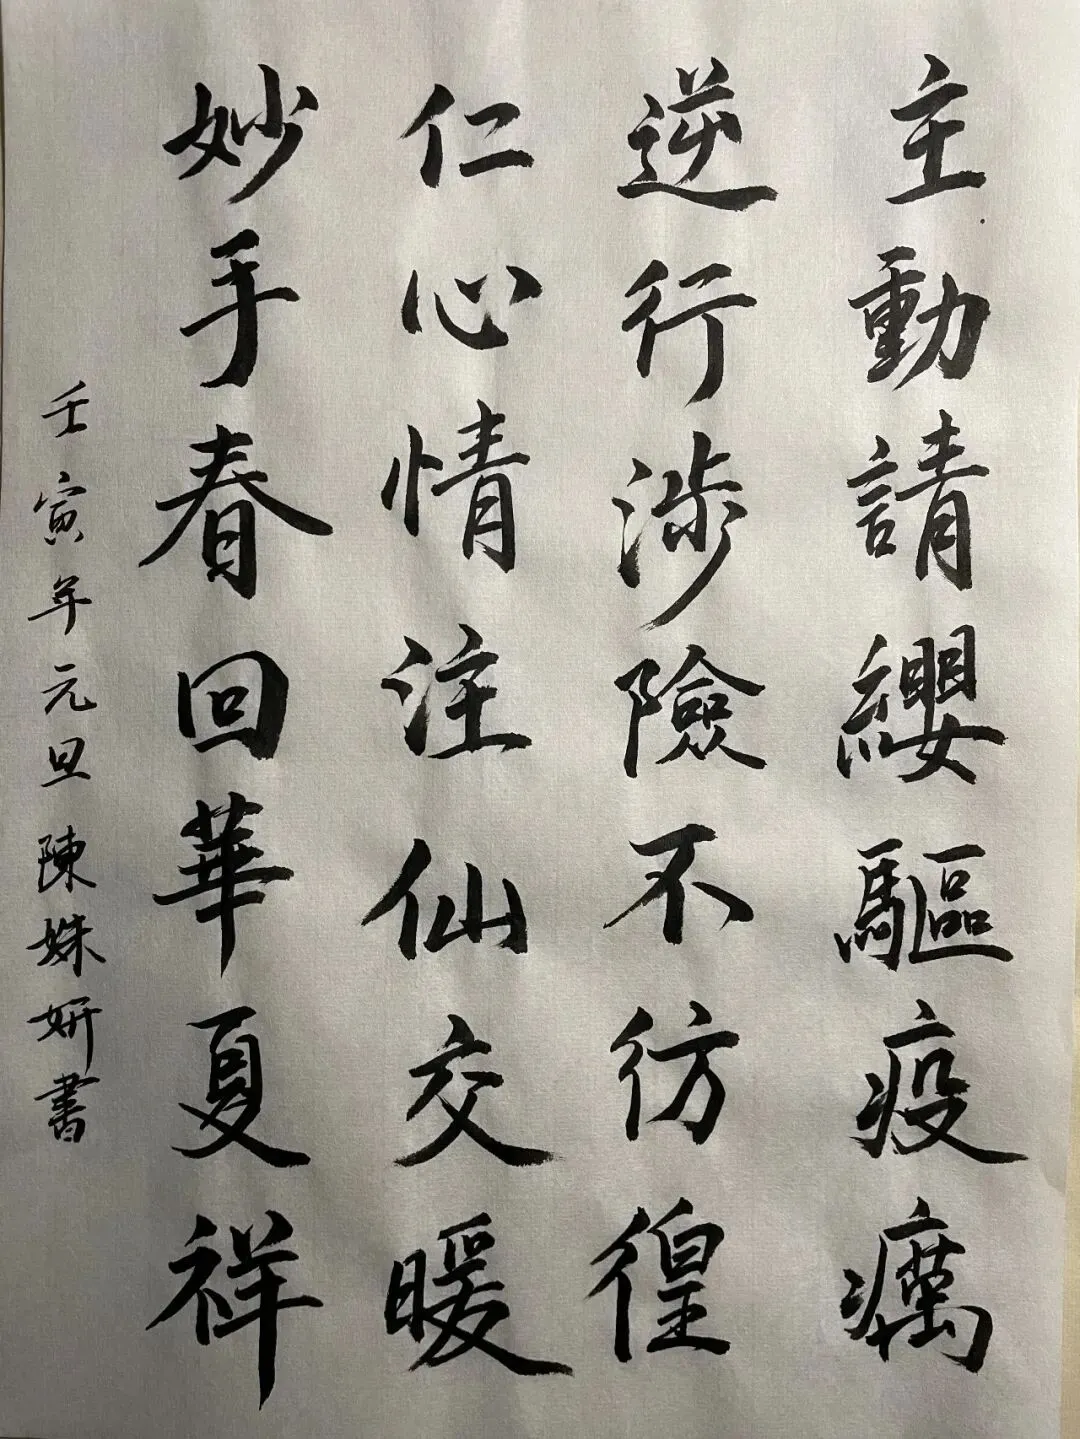 主動請纓驅疫癘
逆行涉險不彷徨
仁心情注仙交暖
妙手春回華夏祥
壬寅年元旦陳姝妍書